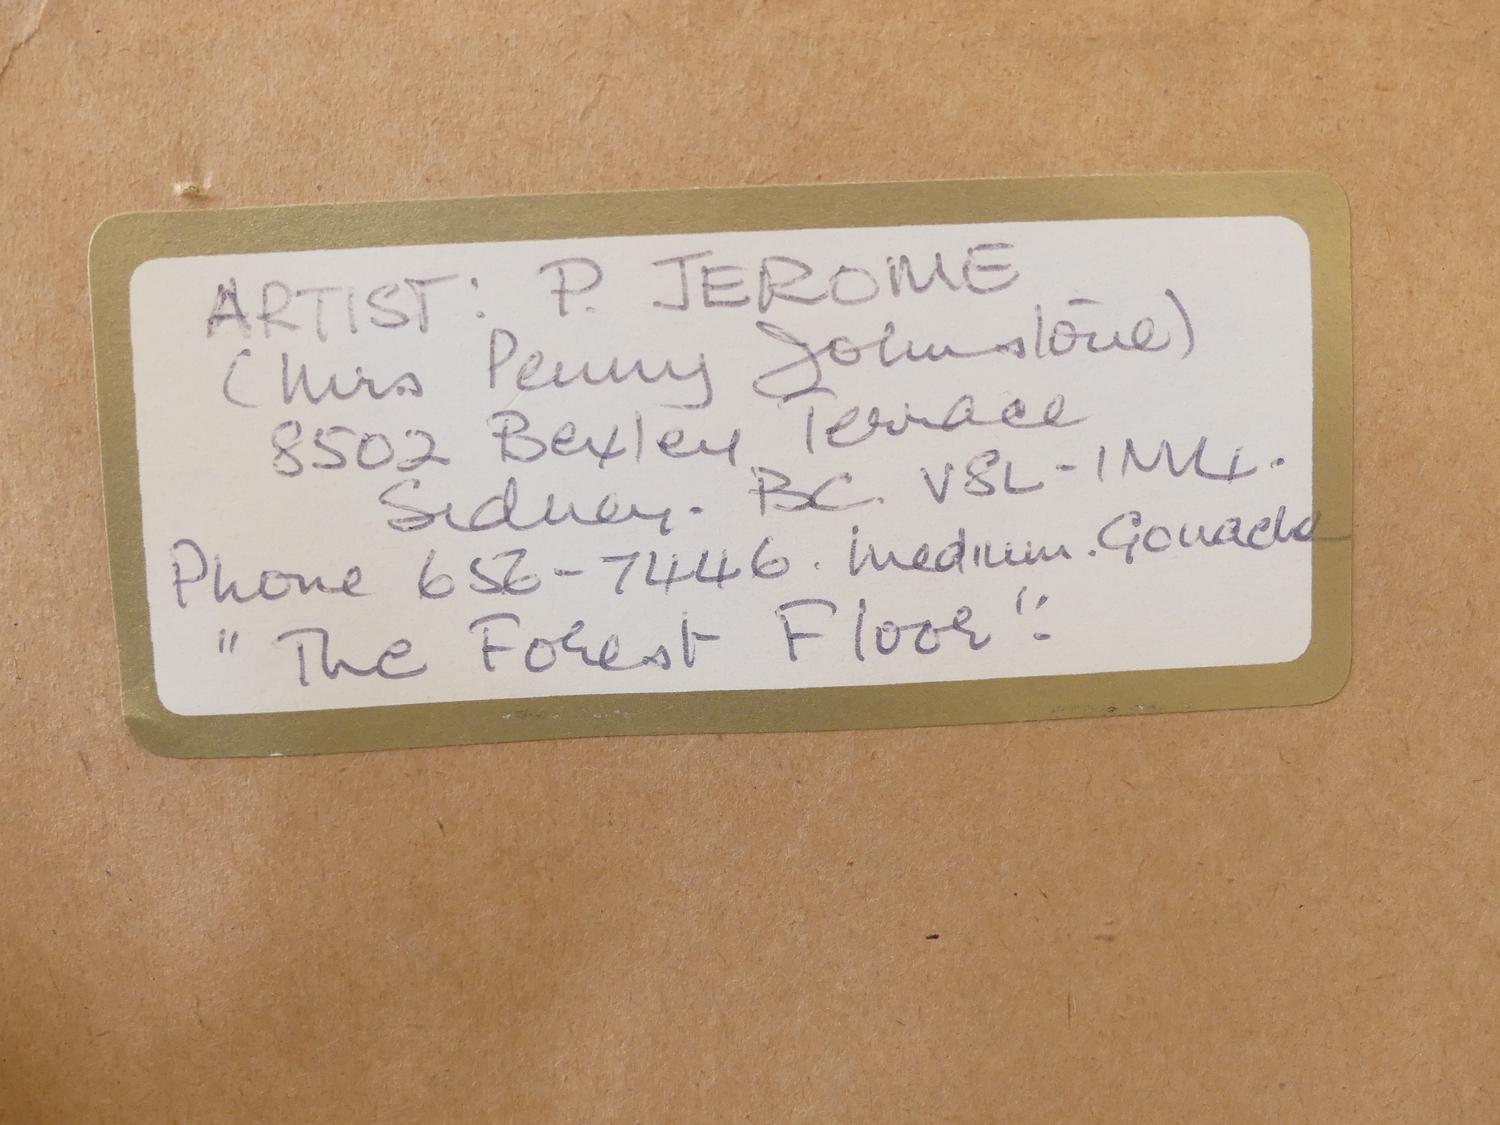 ARTIST: P. JEROME
(Mrs Penny Johnstone)
8502 Bexley Terrace
Sidney. BC. V8L-1M4.
Phone 656-7446. Medium. Gouache
"The Forest Floor".